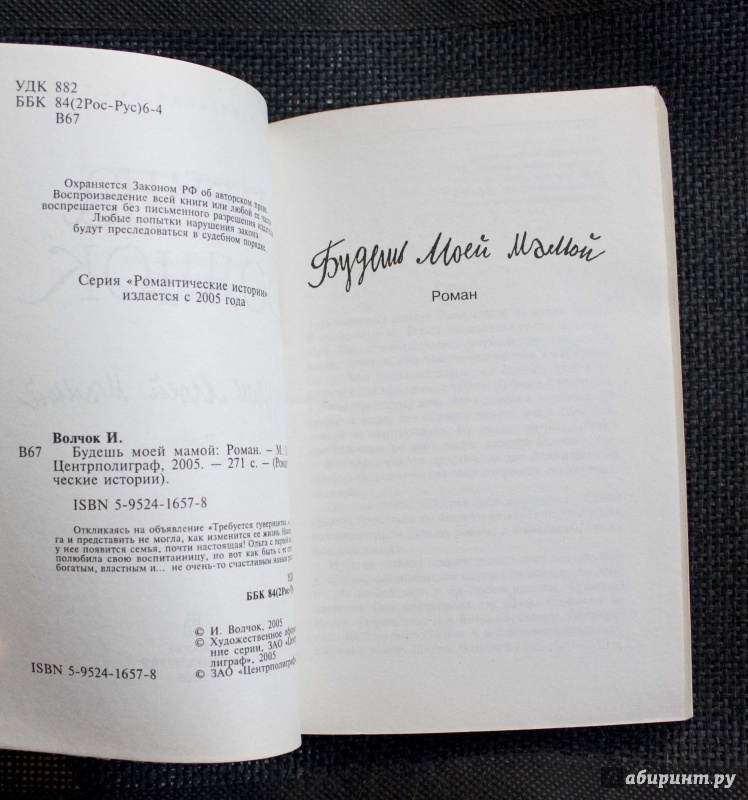 УДК 882
ББК 84(2Рос-Рус)6-4
В67
Охраняется Законом РФ об авторском праве.
Воспроизведение всей книги или любой ее части
воспрещается без письменного разрешения
Любые попытки нарушения закона
будут преследоваться в судебном порядке.
Серия «Романтические истории»
издается с 2005 года
Волчок И.
В67 Будешь моей мамой: Роман. – М.:
Центрполиграф, 2005. — 271 с. – (Роман
ческие истории).
ISBN 5-9524-1657-8
Откликаясь на объявление «Требуется гувернантка
га и представить не могла, как изменится ее жизнь.
у нее появится семья, почти настоящая! Ольга с первой
полюбила свою воспитанницу, но вот как быть с ее
богатым, властным и... не очень-то счастливым
ББК 84(2Рос-Р
© И. Волчок, 2005
© Художественное
ние серии, ЗАО «Цент
лиграф», 2005
© ЗАО «Центрполиграф
ISBN 5-9524-1657-8
Будешь Моей Мамой
Роман
абиринт.ру